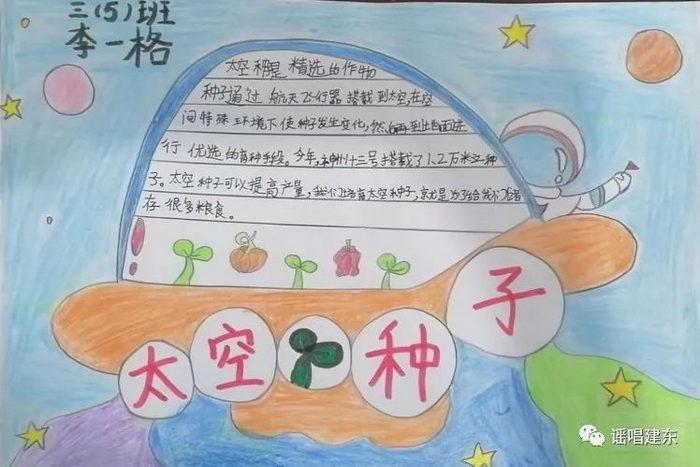 三(5)班
李一格
太空种是精选的作物
种子通过航天飞行器搭载到太空,在空
间特殊环境下使种子发生变化,然后再到地面进
行优选的育种手段。今年,神州十三号搭载了1.2万米立种
子。太空种子可以提高产量,我们培育太空种子,就是为了给我们
存很多粮食。
太空种子
谣唱建东